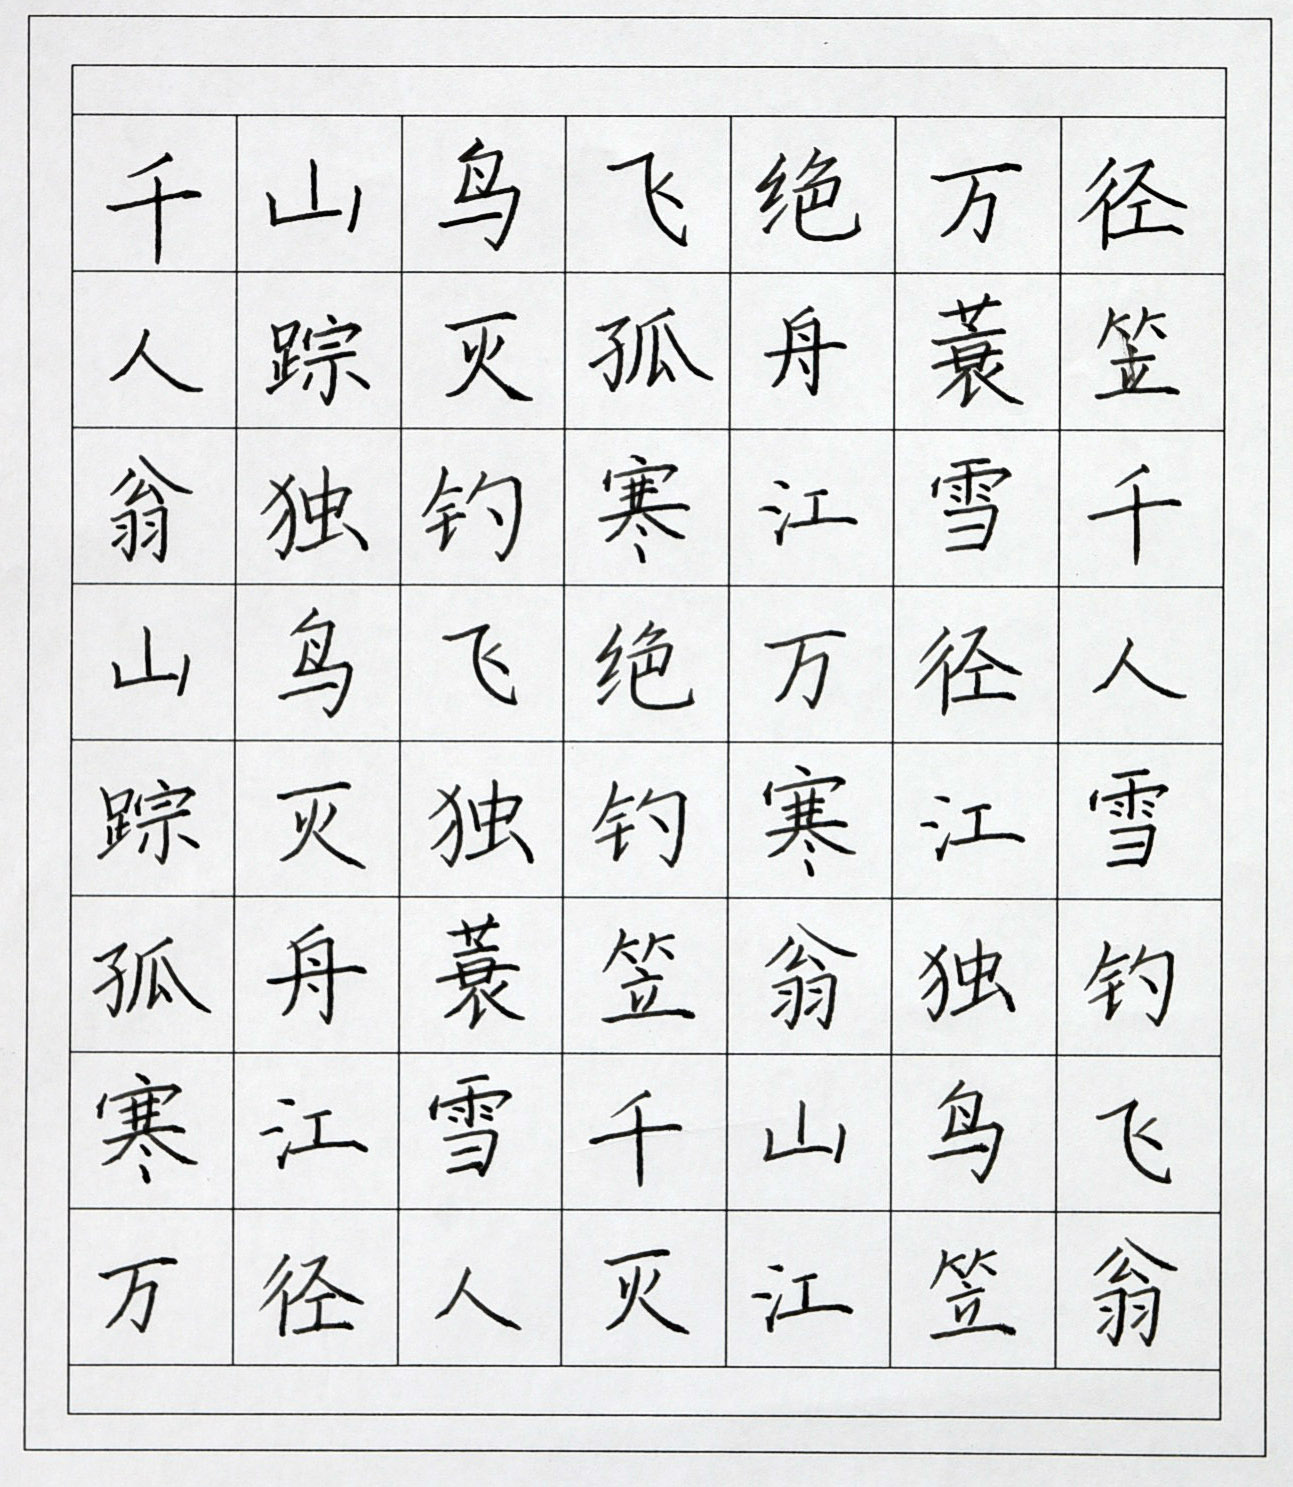 千山鸟飞绝万径
人踪灭孤舟蓑笠
翁独钓寒江雪千
山鸟飞绝万径人
踪灭独钓寒江雪
孤舟蓑笠翁独钓
寒江雪千山鸟飞
万径人灭江笠翁